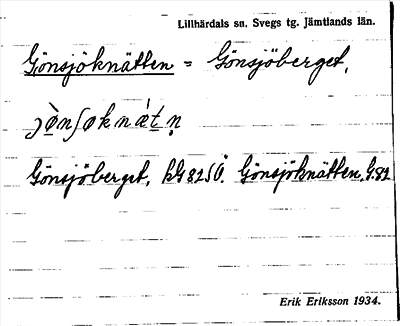 Lillhärdals sn. Svegs tg. Jämtlands län.
Gönsjöknätten = Gönsjöberget.
Gönsjöberget, kG 82 SÖ. Gönsjöknätten, G.82
Erik Eriksson 1934.